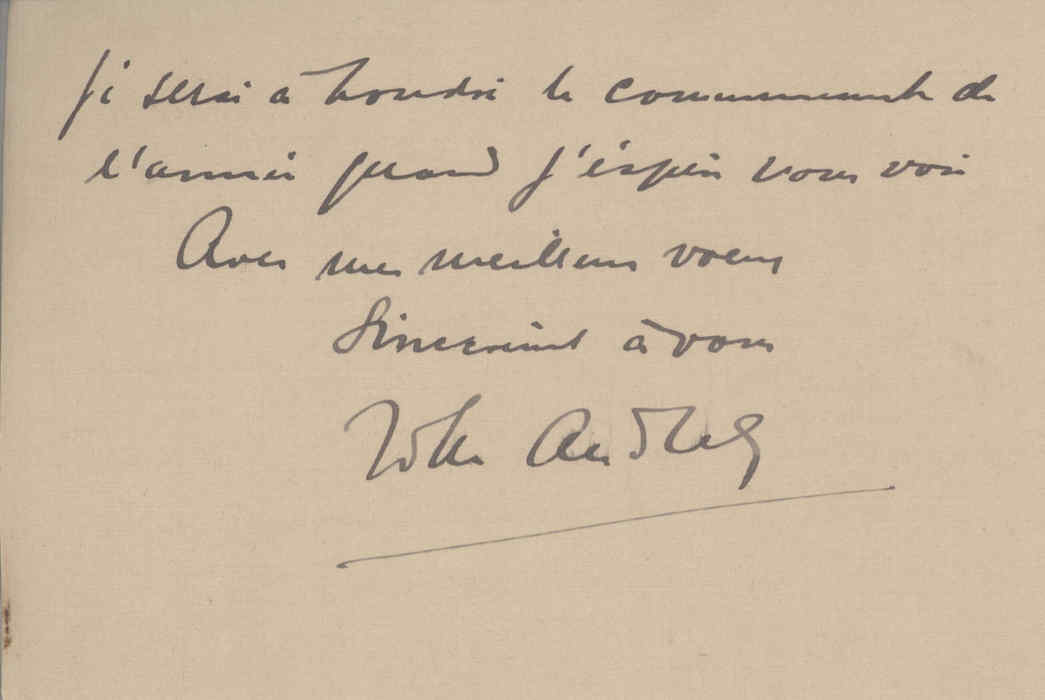 Je serai à Londres le commencement de
l'année quand j'éspère vous voir
Avec mes meilleurs voeux
Sincerement à vous
John